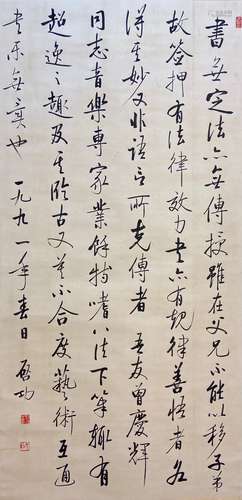 書無定法亦無傳授雖在父兄不能以移子弟
故簽押有法律效力書亦有規律善悟者名
得其妙又非語言所克傳者 吾友曾慶輝
同志音樂專家業餘特嗜八法下筆輒有
超逸之趣及其臨古又莫不合度藝術互通
書樂無異也 一九九一年春日 啟功